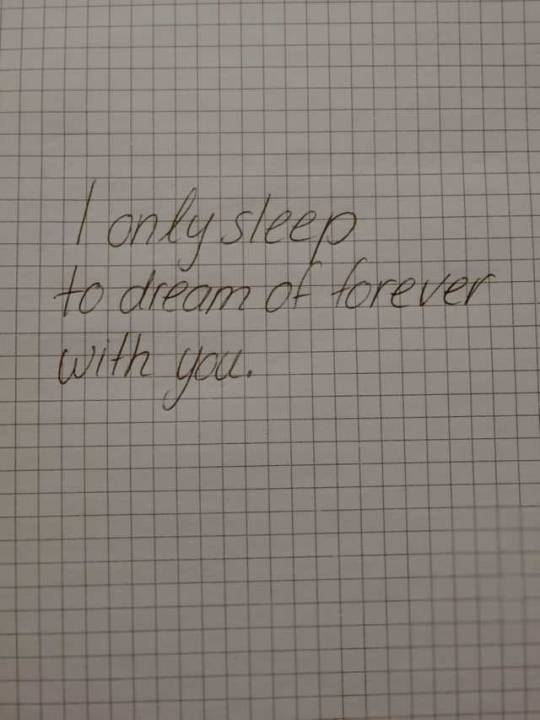 I only sleep
to dream of forever
with you.